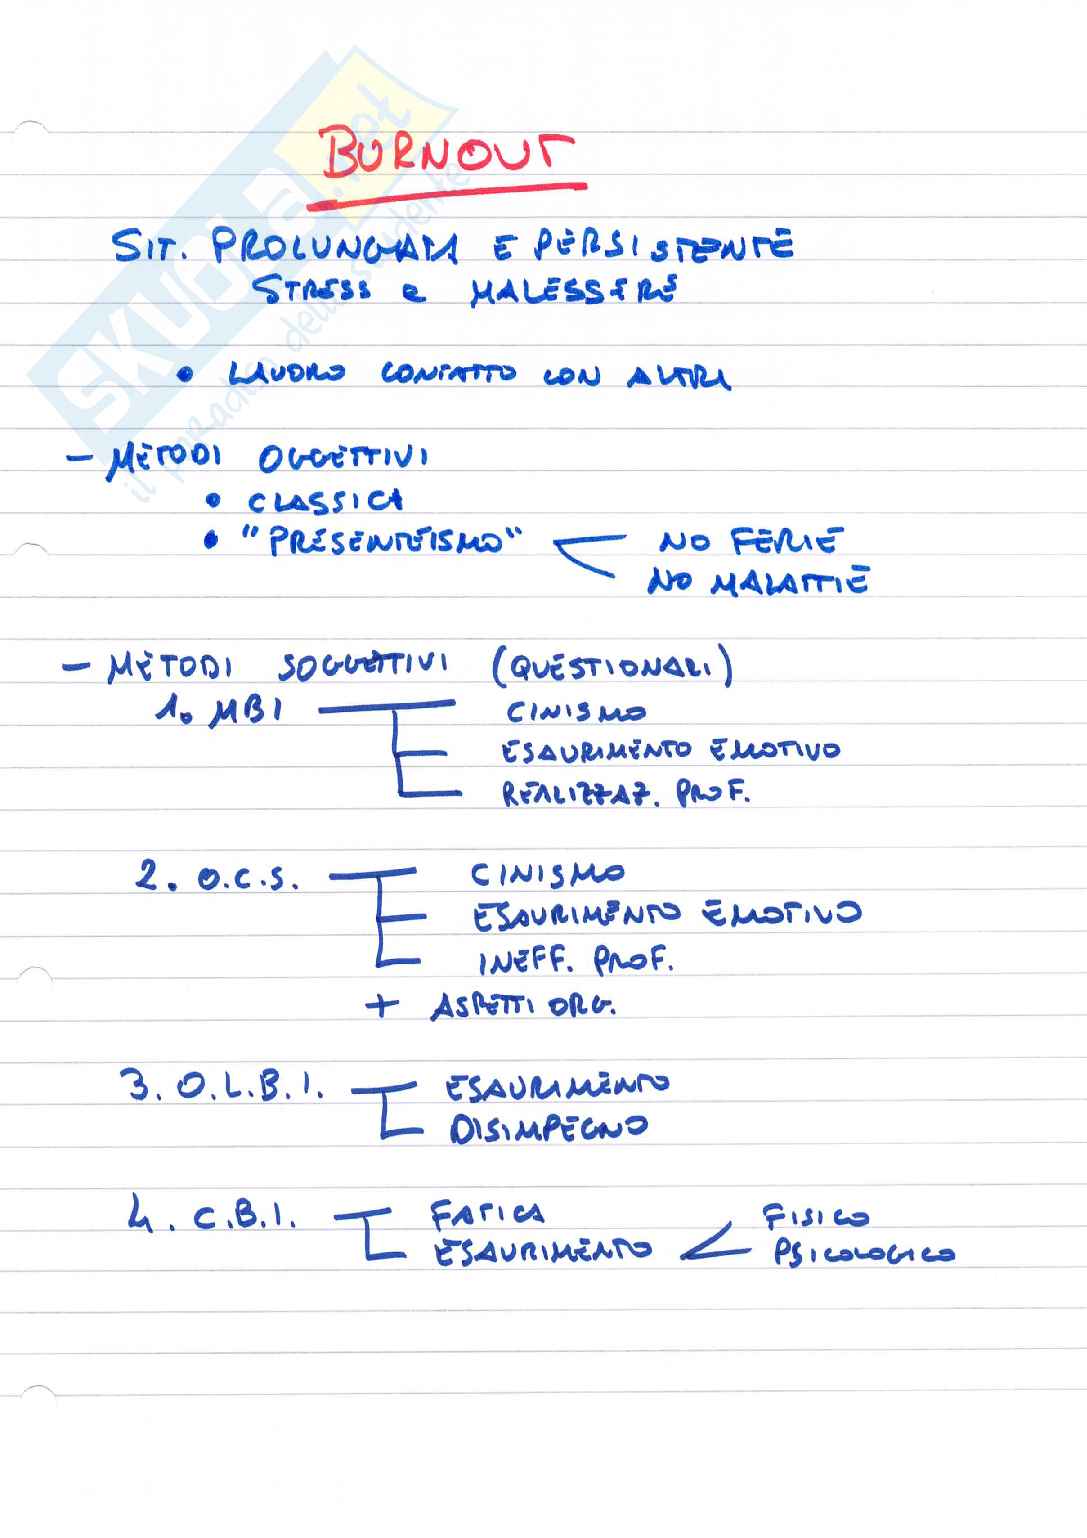 SKUOLA.net
il paradiso dello studente
BURNOUT
SIT. PROLUNGATA E PERSISTENTE
STRESS e MALESSERE
• LAVORO CONTATTO CON ALTRI
- METODI OGGETTIVI
• CLASSICA
• "PRESENTEISMO" NO FERIE
NO MALATTIE
- METODI SOGGETTIVI (QUESTIONARI)
1. MBI CINISMO
ESAURIMENTO EMOTIVO
REALIZZAZ. PROF.
2. O.C.S. CINISMO
ESAURIMENTO EMOTIVO
INEFF. PROF.
+ ASPETTI ORG.
3. O.L.B.I. ESAURIMENTO
DISIMPEGNO
4. C.B.I. FATICA FISICO
ESAURIMENTO PSICOLOGICO